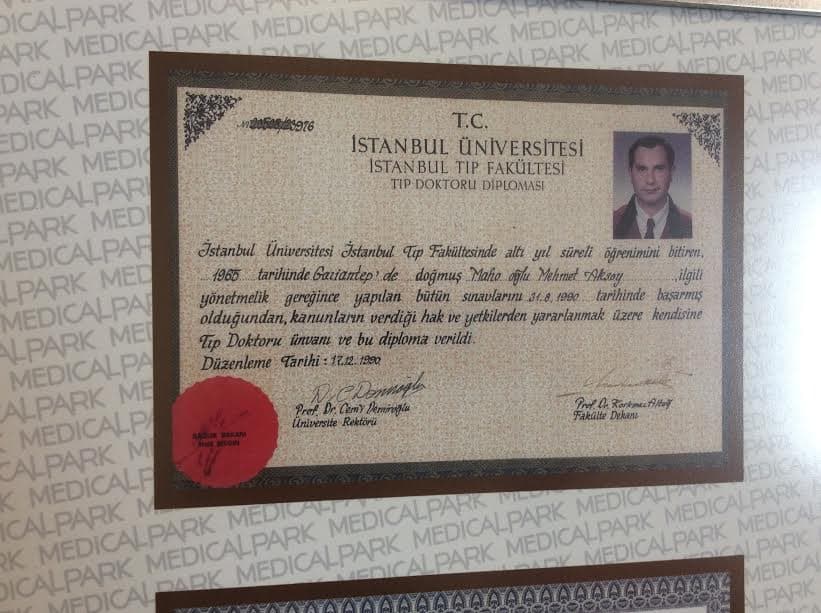 T.C.
İSTANBUL ÜNİVERSİTESİ
İSTANBUL TIP FAKÜLTESİ
TIP DOKTORU DİPLOMASI
İstanbul Üniversitesi İstanbul Tıp Fakültesinde altı yıl süreli öğrenimini bitiren,
1965 tarihinde Gaziantep'de doğmuş Maho oğlu Mehmet Aksoy ,ilgili
yönetmelik gereğince yapılan bütün sınavlarını 31.8.1990 tarihinde başarmış
olduğundan, kanunların verdiği hak ve yetkilerden yararlanmak üzere kendisine
Tıp Doktoru ünvanı ve bu diploma verildi.
Düzenleme Tarihi : 17.12.1990
Prof. Dr. Cem'i Demiroğlu
Üniversite Rektörü
Prof. Dr. Korkmaz Altuğ
Fakülte Dekanı
SAĞLIK BAKANI
MEDICALPARK